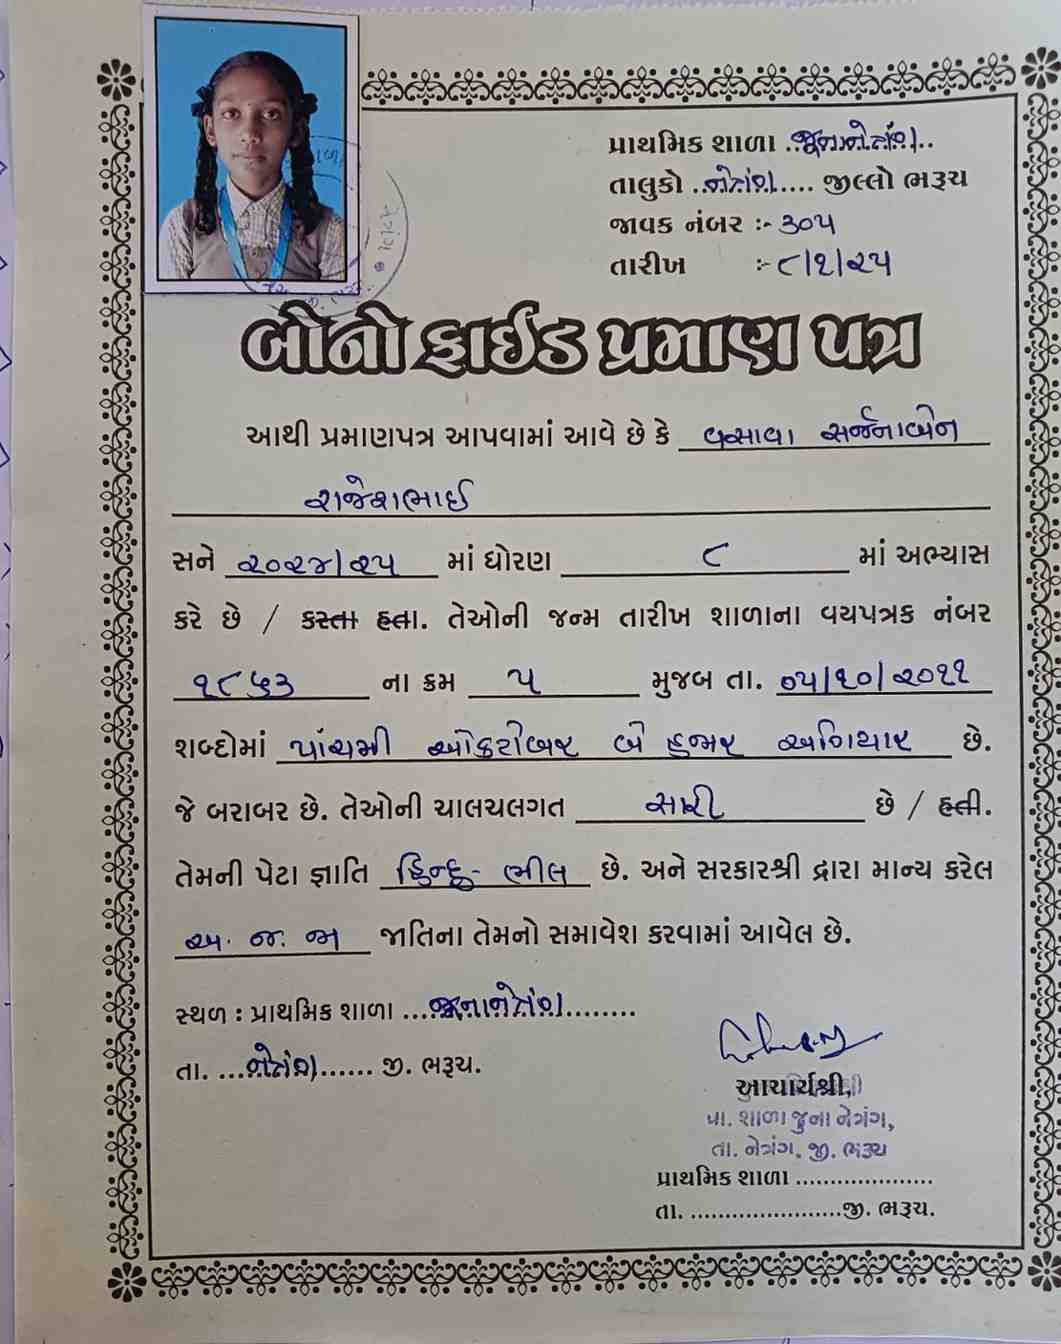 પ્રાથમિક શાળા ..જૂનાનેત્રંગ..
તાલુકો ..નેત્રંગ.... જીલ્લો ભરૂચ
જાવક નંબર :- ૩૦૫
તારીખ :- ૮/૧/૨૫
બોનોફાઈડ પ્રમાણ પત્ર
આથી પ્રમાણપત્ર આપવામાં આવે છે કે વસાવા સર્જનાબેન
રાજેશભાઈ
સને ૨૦૨૪/૨૫ માં ધોરણ ૮ માં અભ્યાસ
કરે છે / કરતા હતા. તેઓની જન્મ તારીખ શાળાના વયપત્રક નંબર
૧૮૫૩ ના ક્રમ ૫ મુજબ તા. ૦૫/૧૦/૨૦૧૧
શબ્દોમાં પાંચમી ઓક્ટોબર બે હજાર અગિયાર છે.
જે બરાબર છે. તેઓની ચાલચલગત સારી છે / હતી.
તેમની પેટા જ્ઞાતિ હિન્દુ- ભીલ છે. અને સરકારશ્રી દ્વારા માન્ય કરેલ
અ. જ. જા જાતિના તેમનો સમાવેશ કરવામાં આવેલ છે.
સ્થળ : પ્રાથમિક શાળા ...જૂનાનેત્રંગ........
તા. ...નેત્રંગ...... જી. ભરૂચ.
આચાર્યશ્રી,
પ્રા. શાળા જુના નેત્રંગ,
તા. નેત્રંગ, જી. ભરૂચ
પ્રાથમિક શાળા ....................
તા. ......................જી. ભરૂચ.